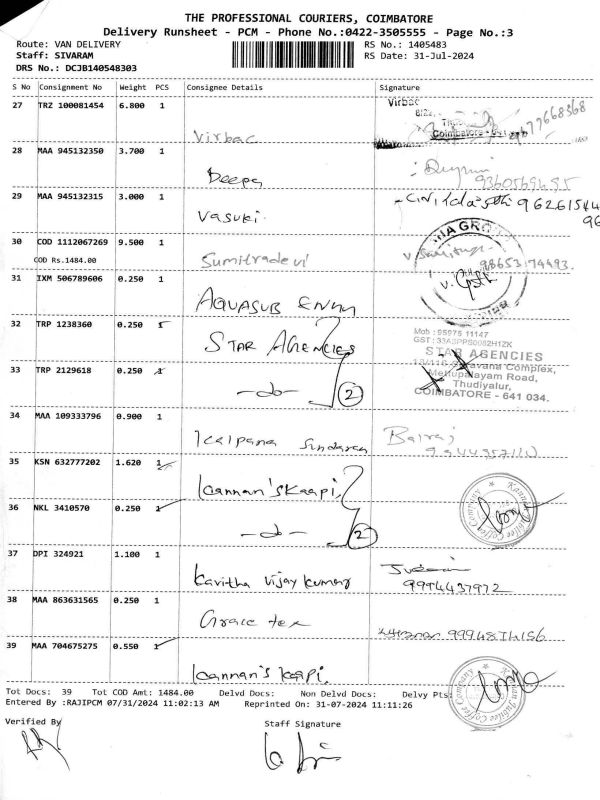 THE PROFESSIONAL COURIERS, COIMBATORE
Delivery Runsheet - PCM - Phone No.:0422-3505555 - Page No.:3
Route: VAN DELIVERY RS No.: 1405483
Staff: SIVARAM RS Date: 31-Jul-2024
DRS No.: DCJB140548303
S No Consignment No Weight PCS Consignee Details Signature
27 TRZ 100081454 6.800 1 Virbac
Virbac
Coimbatore
28 MAA 945132350 3.700 1 Deepa
9360569695
29 MAA 945132315 3.000 1 Vasuki.
30 COD 1112067269 9.500 1 Sumitradevi
COD Rs.1484.00
9865374493.
31 IXM 506789606 0.250 1 AQUASUB ENNN
32 TRP 1238360 0.250 1 STAR AGENCIES
Mob : 95975 11147
GST : 33ASPPS0082H1ZK
STAR AGENCIES
Mettupalayam Road,
Thudiyalur,
COIMBATORE - 641 034.
33 TRP 2129618 0.250 1 -do- 2
34 MAA 109333796 0.900 1 Kalpana Sundaram
Balraj
35 KSN 632777202 1.620 1 Kannan's Kaapi,
36 NKL 3410570 0.250 1 -do- 2
Kannan Jubilee Coffee Company
37 DPI 324921 1.100 1 Kavitha Vijay Kumar
9994437972
38 MAA 863631565 0.250 1 Grace tex
39 MAA 704675275 0.550 1 Kannan's Kaapi.
Kannan Jubilee Coffee Company
Tot Docs: 39 Tot COD Amt: 1484.00 Delvd Docs: Non Delvd Docs: Delvy Pts:
Entered By :RAJIPCM 07/31/2024 11:02:13 AM Reprinted On: 31-07-2024 11:11:26
Verified By Staff Signature